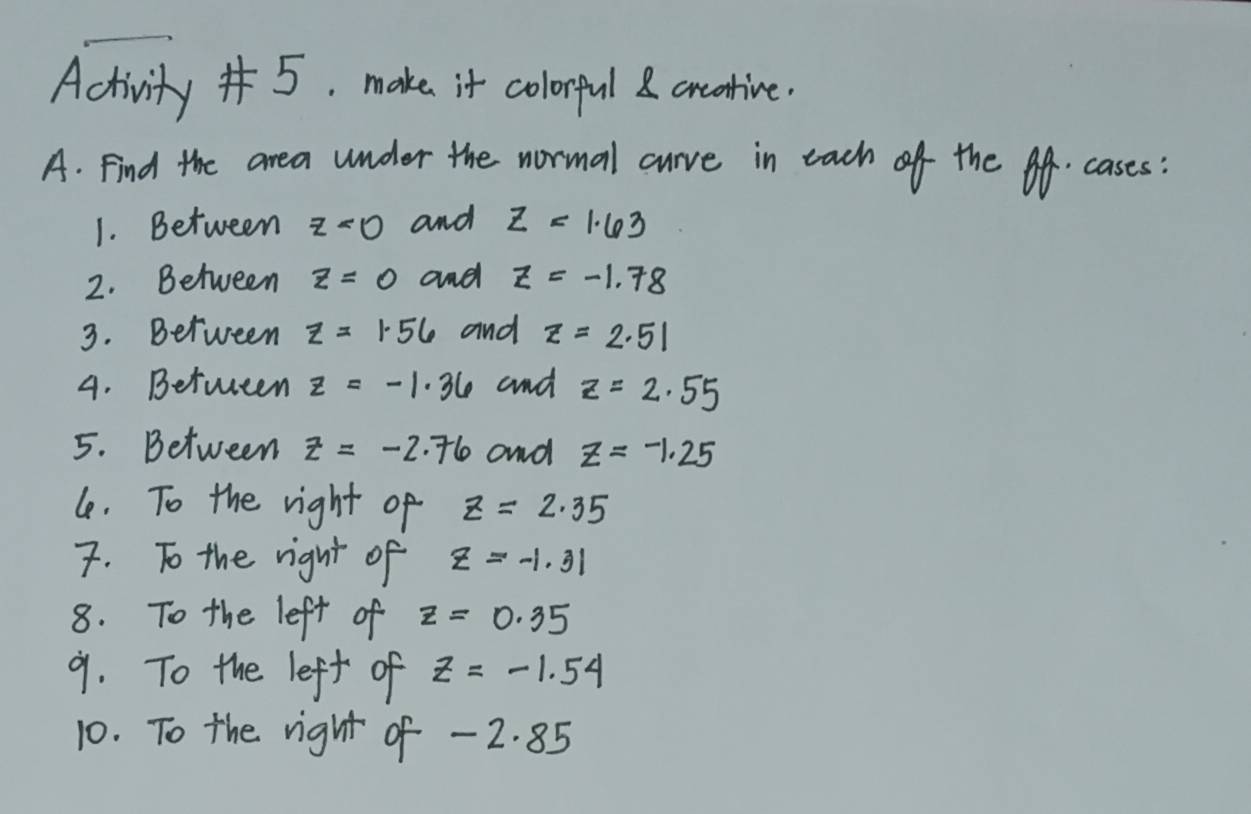 Activity # 5. make it colorful & creative.
A. Find the area under the normal curve in each of the ff. cases:
1. Between z=0 and z = 1.63
2. Between z = 0 and z = -1.78
3. Between z = 1.56 and z = 2.51
4. Between z = -1.36 and z = 2.55
5. Between z = -2.76 and z = -1.25
6. To the right of z = 2.35
7. To the right of z = -1.31
8. To the left of z = 0.35
9. To the left of z = -1.54
10. To the right of -2.85